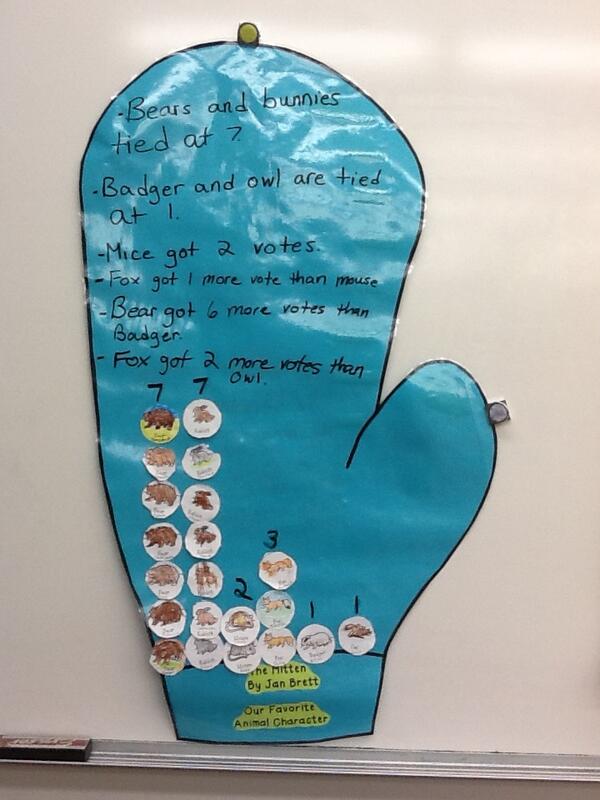 - Bears and bunnies
tied at 7.
- Badger and owl are tied
at 1.
- Mice got 2 votes.
- Fox got 1 more vote than mouse
- Bear got 6 more votes than
Badger.
- Fox got 2 more votes than
Owl.
7 7
3
2
1 1
The Mitten
By Jan Brett
Our Favorite
Animal Character